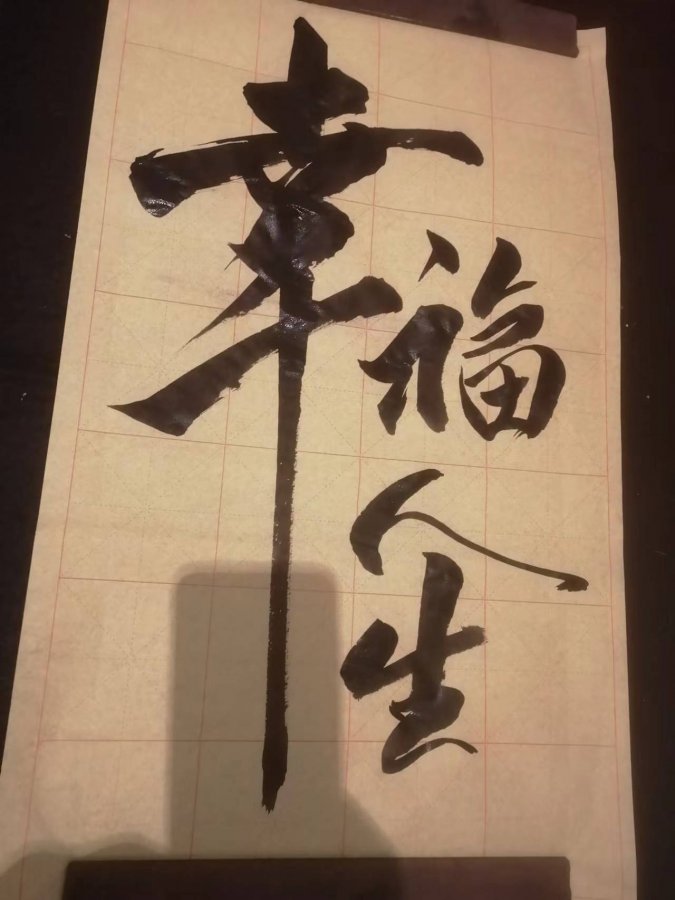 幸福人生